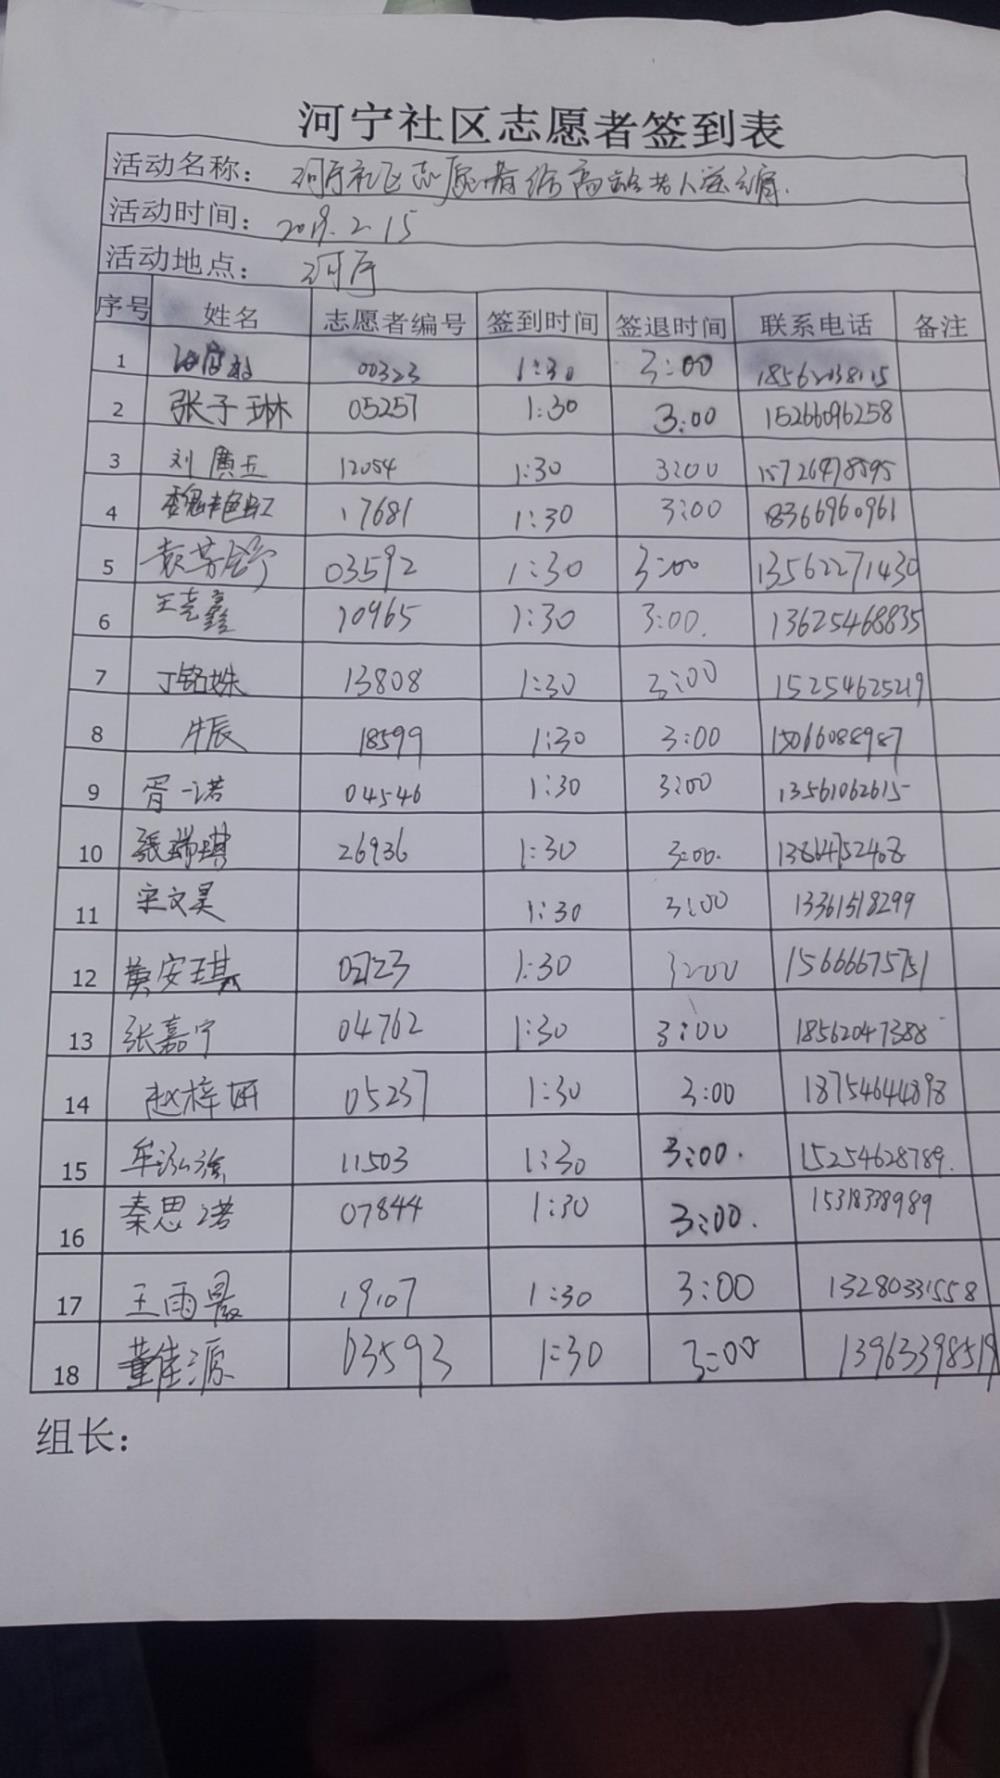 河宁社区志愿者签到表
活动名称: 河宁社区志愿者给高龄老人送
活动时间: 2019.2.15
活动地点: 河宁
序号 姓名 志愿者编号 签到时间 签退时间 联系电话 备注
1 00323 1:30 3:00
2 张子琳 05257 1:30 3:00 15266096258
3 刘广五 12054 1:30 3:00 15726478595
4 魏艳虹 17681 1:30 3:00 18366960961
5 袁芳 03592 1:30 3:00 13562271430
6 王克鑫 10965 1:30 3:00. 13625468835
7 丁铭姝 13808 1:30 3:00 15254625219
8 牛辰 18599 1:30 3:00 15066088987
9 胥一诺 04546 1:30 3:00 13561062615
10 张瑞琪 26936 1:30 3:00. 13864752408
11 宋文昊 1:30 3:00 13361518299
12 黄安琪 1:30 3:00 15666675751
13 张嘉宁 04762 1:30 3:00 18562047388
14 赵梓妍 05237 1:30 3:00 18754644898
15 牟泓 11503 1:30 3:00. 15254628789.
16 秦思诺 07844 1:30 3:00. 15318338989
17 王雨 19107 1:30 3:00 13280331558
18 董佳源 03593 1:30 3:00 13963398519
组长: